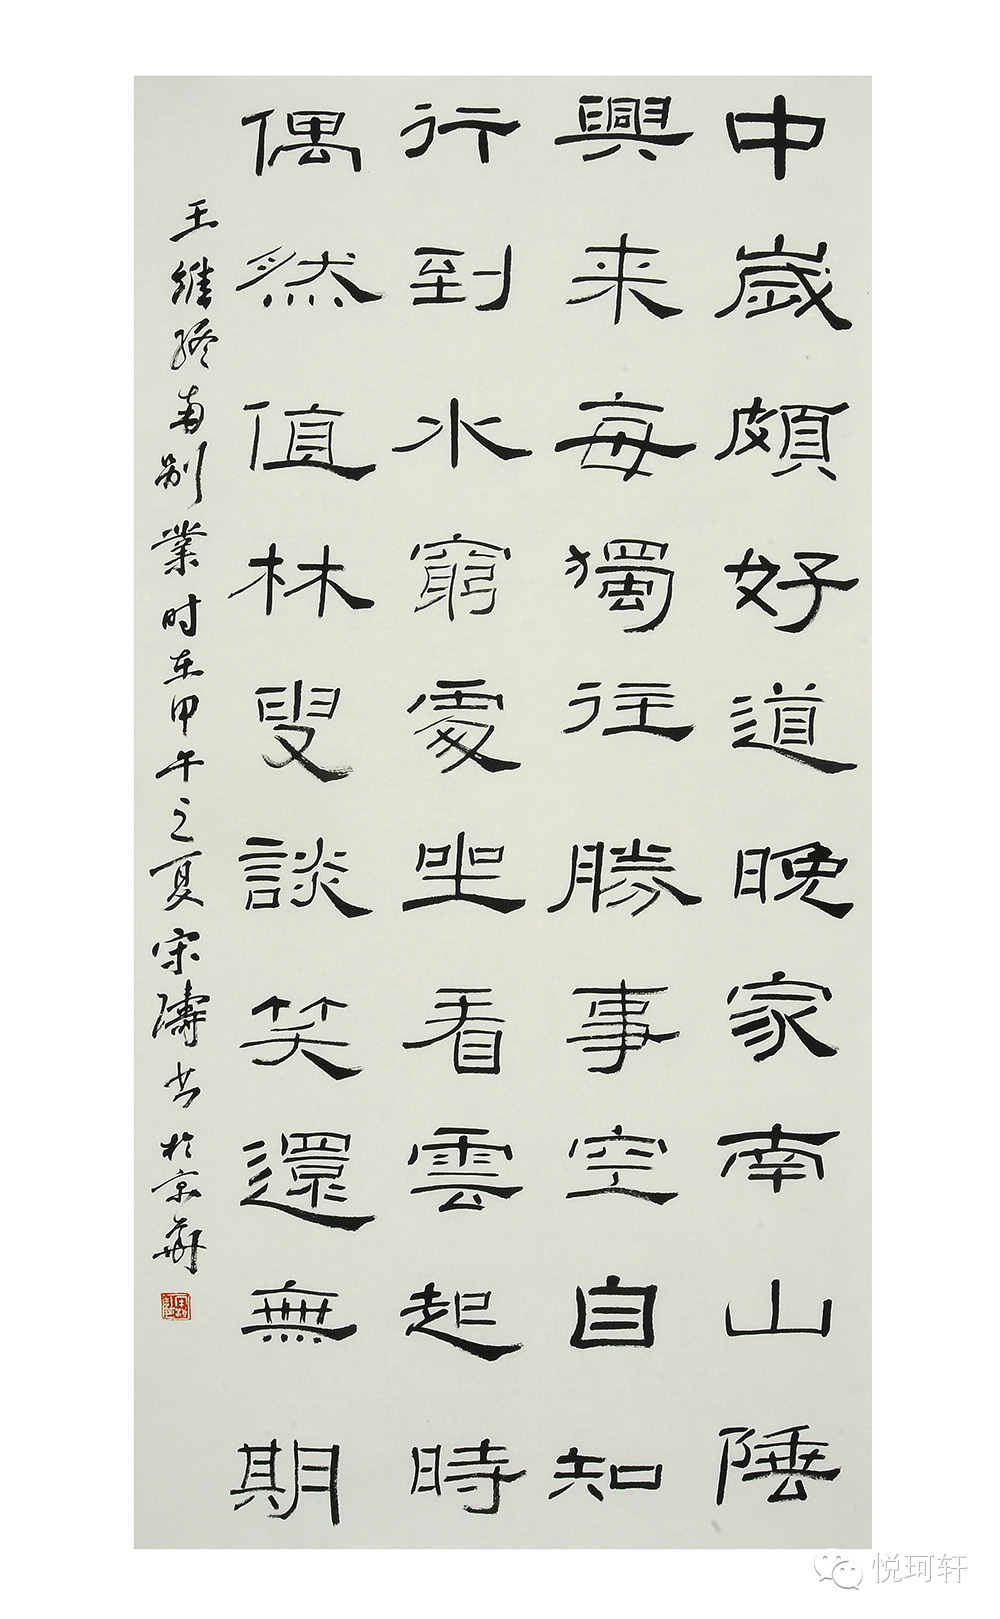 中歲頗好道晚家南山陲
興来每獨往勝事空自知
行到水窮處坐看雲起時
偶然值林叟談笑還無期
王維終南别業时在甲午之夏宋濤书於京華
悦珂轩